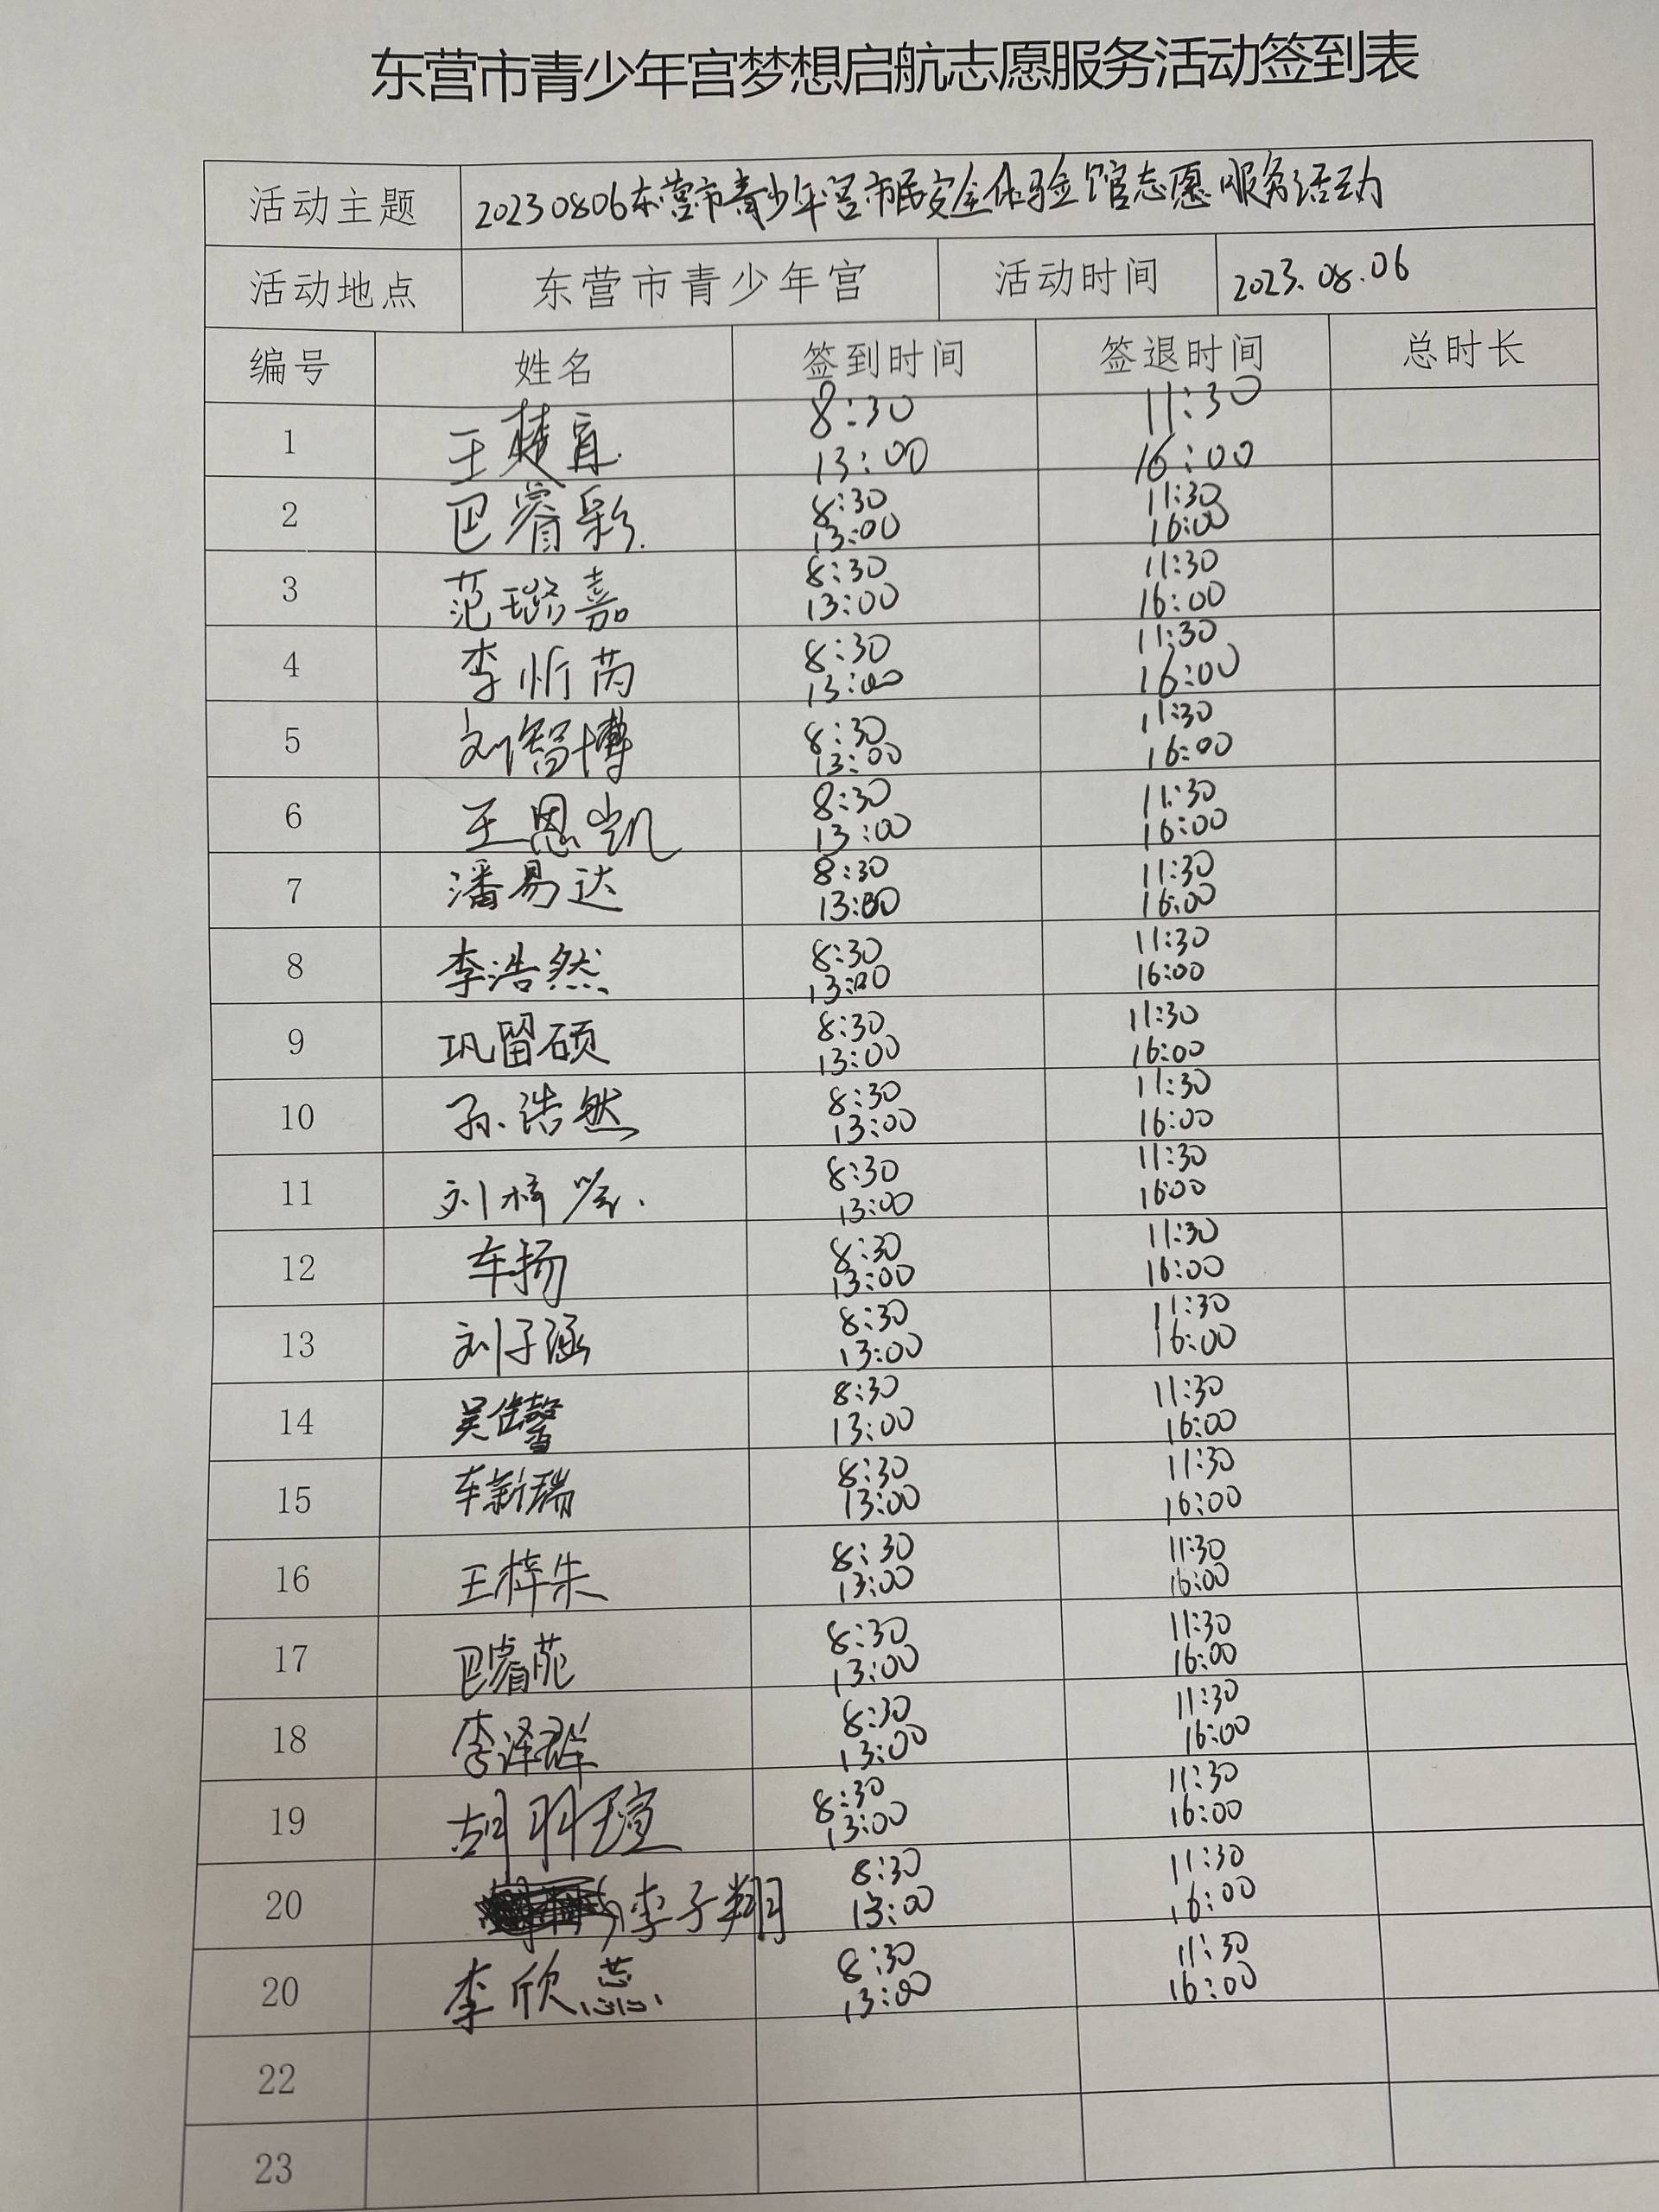 东营市青少年宫梦想启航志愿服务活动签到表
活动主题 20230806东营市青少年宫市民安全体验馆志愿服务活动
活动地点 东营市青少年宫 活动时间 2023.08.06
编号 姓名 签到时间 签退时间 总时长
8:30 11:30
1 王楚宜
13:00 16:00
8:30 11:30
2 巴睿彩
13:00 16:00
8:30 11:30
3 范璐嘉
13:00 16:00
8:30 11:30
4 李忻芮
13:00 16:00
8:30 11:30
5 刘智博
13:00 16:00
8:30 11:30
6 王恩凯
13:00 16:00
8:30 11:30
7 潘易达
13:00 16:00
8:30 11:30
8 李浩然
13:00 16:00
8:30 11:30
9 巩留硕
13:00 16:00
8:30 11:30
10 孙浩然
13:00 16:00
8:30 11:30
11 刘梓
13:00 16:00
8:30 11:30
12 车扬
13:00 16:00
8:30 11:30
13 刘子涵
13:00 16:00
8:30 11:30
14 吴佳馨
13:00 16:00
8:30 11:30
15 车新瑞
13:00 16:00
8:30 11:30
16 王梓朱
13:00 16:00
8:30 11:30
17 巴睿苑
13:00 16:00
8:30 11:30
18 李泽群
13:00 16:00
8:30 11:30
19 胡羽瑄
13:00 16:00
8:30 11:30
20 李子翔
13:00 16:00
8:30 11:30
20 李欣蕊
13:00 16:00
22
23